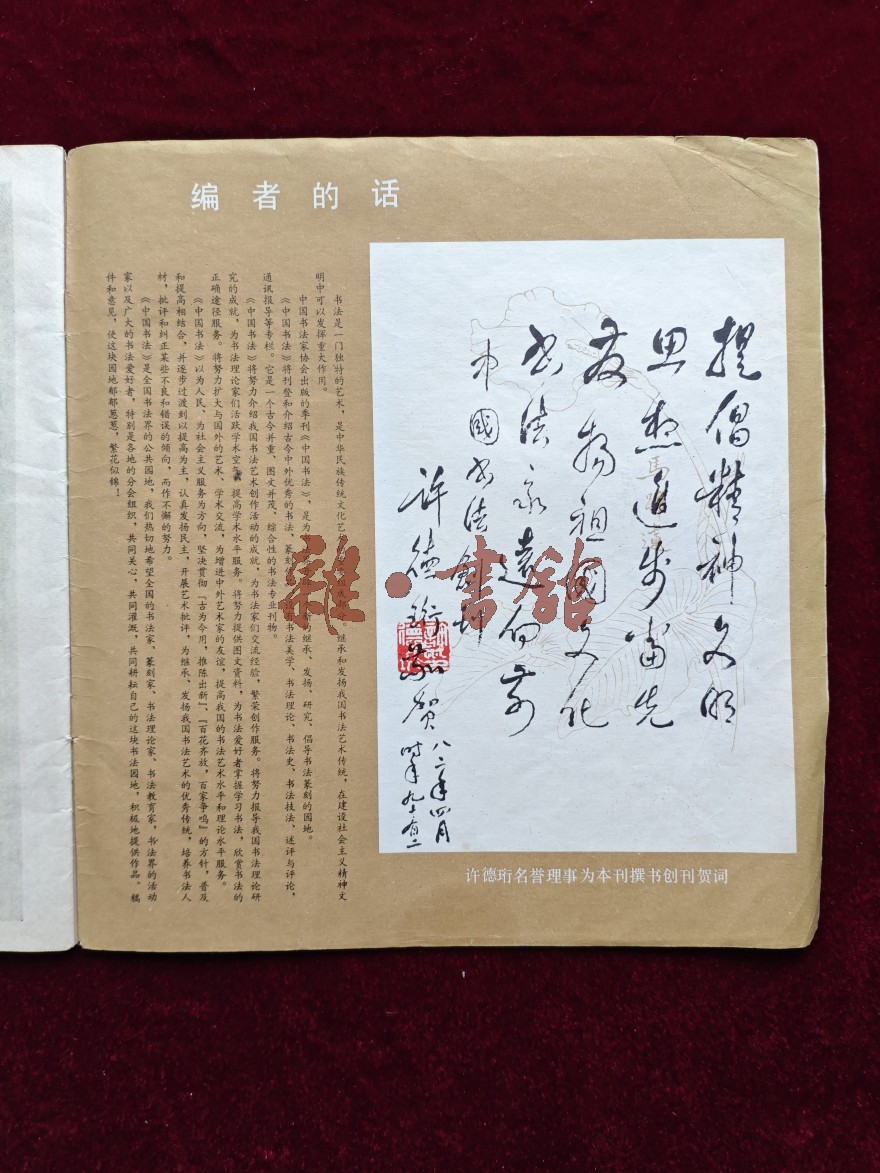 编者的话
书法是一门独特的艺术，是中华民族传统文化艺 继承和发扬我国书法艺术传统，在建设社会主义精神文
明中可以发挥重大作用。
中国书法家协会出版的季刊《中国书法》，是为 的继承、发扬、研究、倡导书法篆刻的园地。
《中国书法》将刊登和介绍古今中外优秀的书法、篆刻 书法美学、书法理论、书法史、书法技法、述评与评论、
通讯报导等专栏。它是一个古今并重、图文并茂、综合性的书法专业刊物。
《中国书法》将努力介绍我国书法艺术创作活动的成就，为书法家们交流经验，繁荣创作服务。将努力报导我国书法理论研
究的成就，为书法理论家们活跃学术空气，提高学术水平服务。将努力提供图文资料，为书法爱好者掌握学习书法，欣赏书法的
正确途径服务。将努力扩大与国外的艺术、学术交流，为增进中外艺术家的友谊，提高我国的书法艺术水平和理论水平服务。
《中国书法》以为人民、为社会主义服务为方向，坚决贯彻「古为今用，推陈出新」、「百花齐放，百家争鸣」的方针，普及
和提高相结合，并逐步过渡到以提高为主，认真发扬民主，开展艺术批评，为继承、发扬我国书法艺术的优秀传统，培养书法人
材，批评和纠正某些不良和错误的倾向，而作不懈的努力。
《中国书法》是全国书法界的公共园地，我们热切地希望全国的书法家、篆刻家、书法理论家、书法教育家，书法界的活动
家以及广大的书法爱好者，特别是各地的分会组织，共同关心，共同灌溉，共同耕耘自己的这块书法园地，积极地提供作品、稿
件和意见，使这块园地郁郁葱葱，繁花似锦！
提倡精神文明
思想進步當先
发扬祖國文化
书法永远向前
中國书法創刊
许德珩敬贺
八二年四月
时年九十有二
许德珩名誉理事为本刊撰书创刊贺词
雜·書舘